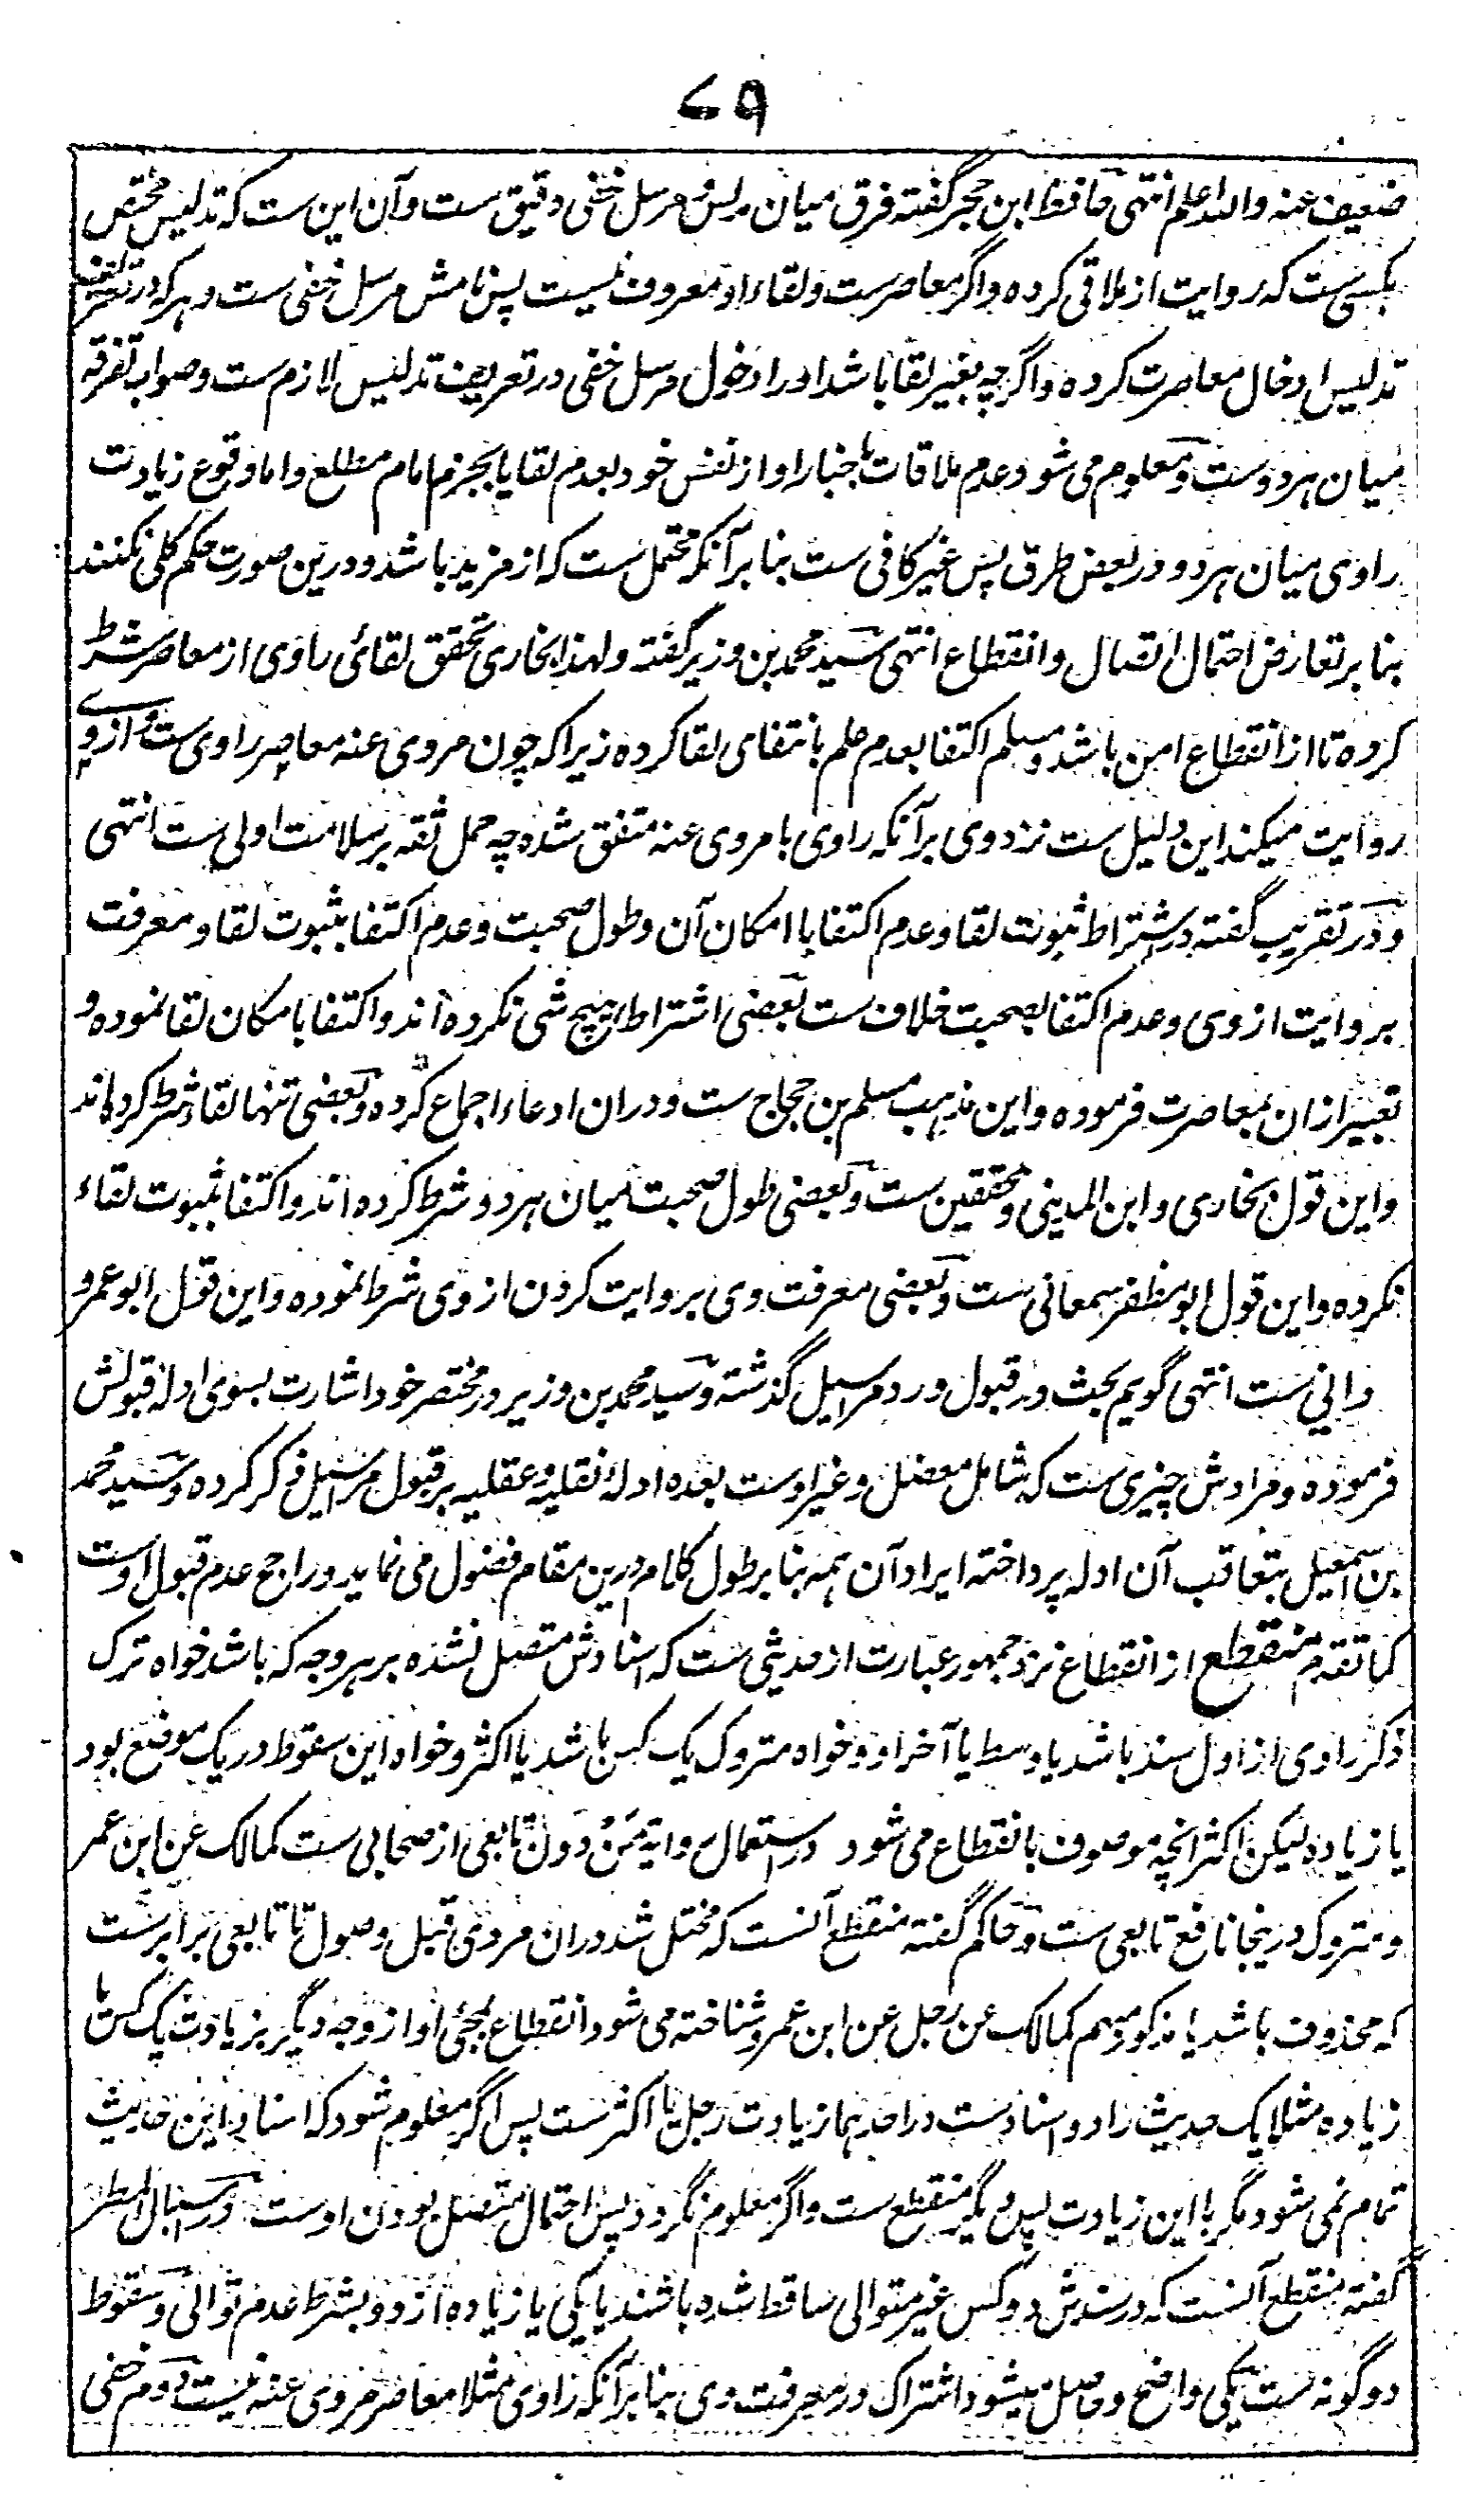 ۷۹
ضعیف عنه والله اعلم انتهی حافظ ابن حجر گفته فرق میان مدلس و مرسل خفی دقیق ست و آن این ست که تدلیس مختص
بکسی ست که روایت از ملاقی کرده و اگر معاصرست و لقاء او معروف نیست پس نامش مرسل خفی ست و هر که در تعریف
تدلیس ادخال معاصرت کرده و اگرچه بغیر لقا باشد او را دخول مرسل خفی در تعریف تدلیس لازم ست و صواب تفرقه
میان هر دوست و معلوم می شود عدم ملاقات باخبار او از نفس خود بعدم لقا یا بجزم امام مطلع و اما وقوع زیادت
راوی میان هر دو در بعض طرق پس غیر کافی ست بنا بر آنکه محتمل ست که از مزید باشد و درین صورت حکم کلی نکنند
بنا بر تعارض احتمال اتصال و انقطاع انتهی سید محمد بن وزیر گفته و لهذا بخاری تحقق لقائی راوی از معاصر شرط
کرده تا از انقطاع امن باشد و مسلم اکتفا بعدم علم بانتفای لقا کرده زیرا که چون مروی عنه معاصر راوی ست و از وی
روایت میکند این دلیل ست نزد وی بر آنکه راوی با مروی عنه متفق شده چه حمل ثقه بر سلامت اولی ست انتهی
و در تقریب گفته در اشتراط ثبوت لقا و عدم اکتفا با امکان آن و طول صحبت و عدم اکتفا بثبوت لقا و معرفت
بروایت از وی و عدم اکتفا بصحبت خلاف ست بعضی اشتراط هیچ شی نکرده اند و اکتفا بامکان لقا نموده و
تعبیر ازان بمعاصرت فرموده و این مذهب مسلم بن حجاج ست و دران ادعاء اجماع کرده و بعضی تنها لقاء شرط کرده اند
و این قول بخاری و ابن المدینی و محققین ست و بعضی طول صحبت میان هر دو شرط کرده اند و اکتفا بثبوت لقاء
نکرده و این قول ابو مظفر سمعانی ست و بعضی معرفت وی بروایت کردن از وی شرط نموده و این قول ابو عمرو
دانی ست انتهی گویم بحث در قبول و رد مراسیل گذشته و سید محمد بن وزیر در مختصر خود اشارت بسوی ادله قبولش
فرموده و مرادش چیزی ست که شامل معضل و غیر اوست بعده ادلهٔ نقلیه و عقلیه بر قبول مراسیل ذکر کرده و سید محمد
بن اسمعیل بتعاقب آن ادله پرداخته ایراد آن همه بنا بر طول کلام درین مقام فضول می نماید و راجح عدم قبول اوست
کما تقدم منقطع از انقطاع نزد جمهور عبارت از حدیثی ست که اسنادش متصل نشده بر هر وجه که باشد خواه ترک
ذکر راوی از اول سند باشد یا وسط یا آخر او و خواه متروک یک کس باشد یا اکثر و خواه این سقوط در یک موضع بود
یا زیاده لیکن اکثر انچه موصوف بانقطاع می شود در استعمال روایة مَنْ دَون تابعی از صحابی ست کمالک عن ابن عمر
و متروک درینجا نافع تابعی ست و حاکم گفته منقطع آنست که مختل شد دران مردی قبل وصول تا تابعی برابرست
که محذوف باشد یا مذکور مبهم کمالک عن رجل عن ابن عمر و شناخته می شود انقطاع بمجئی او از وجه دیگر بزیادت یک کس یا
زیاده مثلا یک حدیث را دو اسناد ست در احدیهما زیادت رجل یا اکثرست پس اگر معلوم شود که اسناد این حدیث
تمام نمی شود مگر با این زیادت پس دیگر منقطع ست و اگر معلوم نگردد پس احتمال متصل بودن اوست و در اسبال المطر
گفته منقطع آنست که در سندش دو کس غیر متوالی ساقط شده باشند یا یکی یا زیاده از دو بشرط عدم توالی و سقوط
دو گونه است یکی واضح و حاصل میشود اشتراک در معرفت وی بنا بر آنکه راوی مثلا معاصر مروی عنه نیست دوم خفی